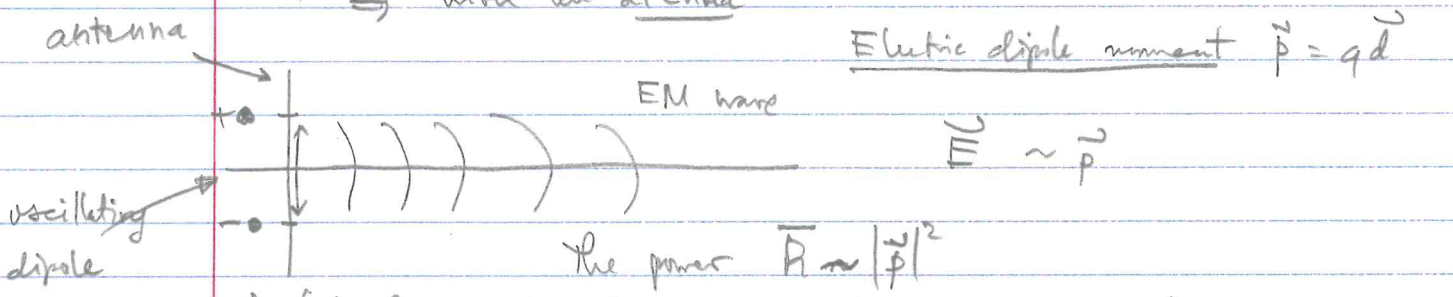 antenna
Electric dipole moment p⃗ = q d⃗
+
EM wave
E⃗ ~ p⃗
oscillating
-
dipole
The power P̅ ~ |p⃗|²